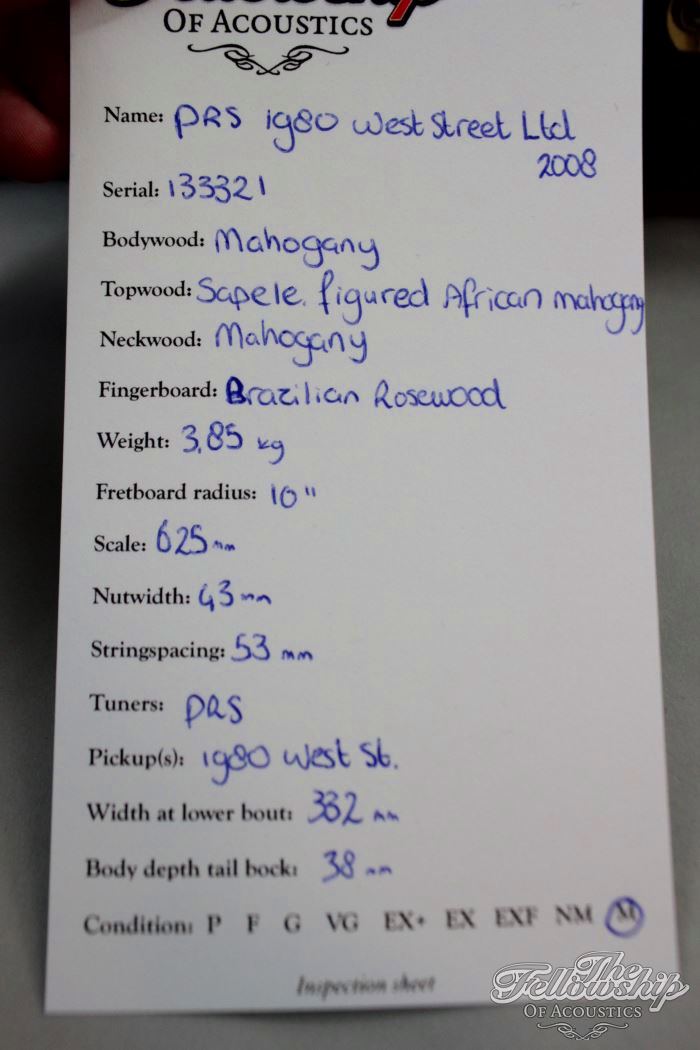 Fellowship
OF ACOUSTICS
Name: PRS 1980 West Street Ltd
2008
Serial: 133321
Bodywood: Mahogany
Topwood: Sapele. figured African mahogany
Neckwood: Mahogany
Fingerboard: Brazilian Rosewood
Weight: 3,85 kg
Fretboard radius: 10"
Scale: 625 mm
Nutwidth: 43 mm
Stringspacing: 53 mm
Tuners: PRS
Pickup(s): 1980 West St.
Width at lower bout: 332 mm
Body depth tail bock: 38 mm
Condition: P F G VG EX+ EX EXF NM M
Inspection sheet
The
Fellowship
OF ACOUSTICS